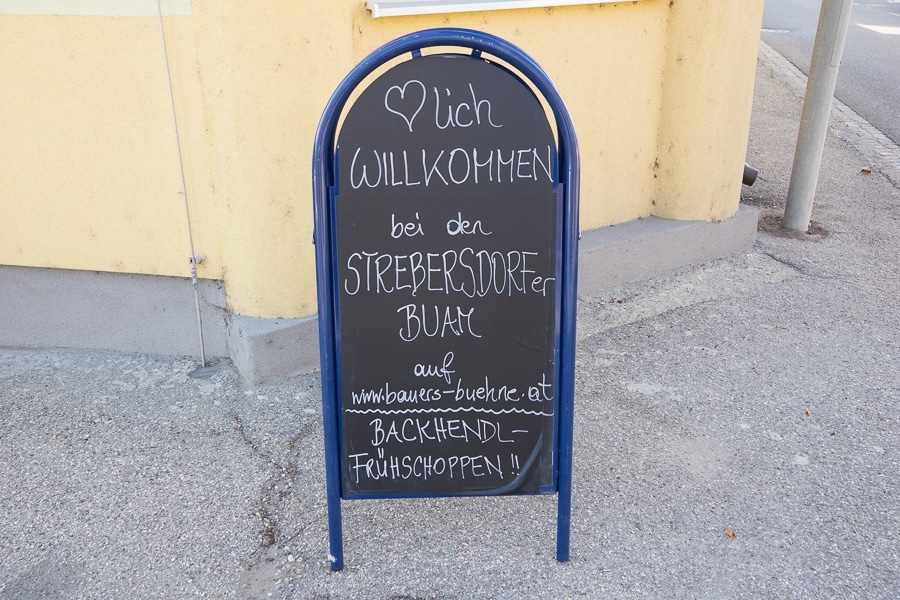 ♡lich
WILLKOMMEN
bei den
STREBERSDORFer
BUAM
auf
www.bauers-buehne.at
BACKHENDL-
FRÜHSCHOPPEN!!